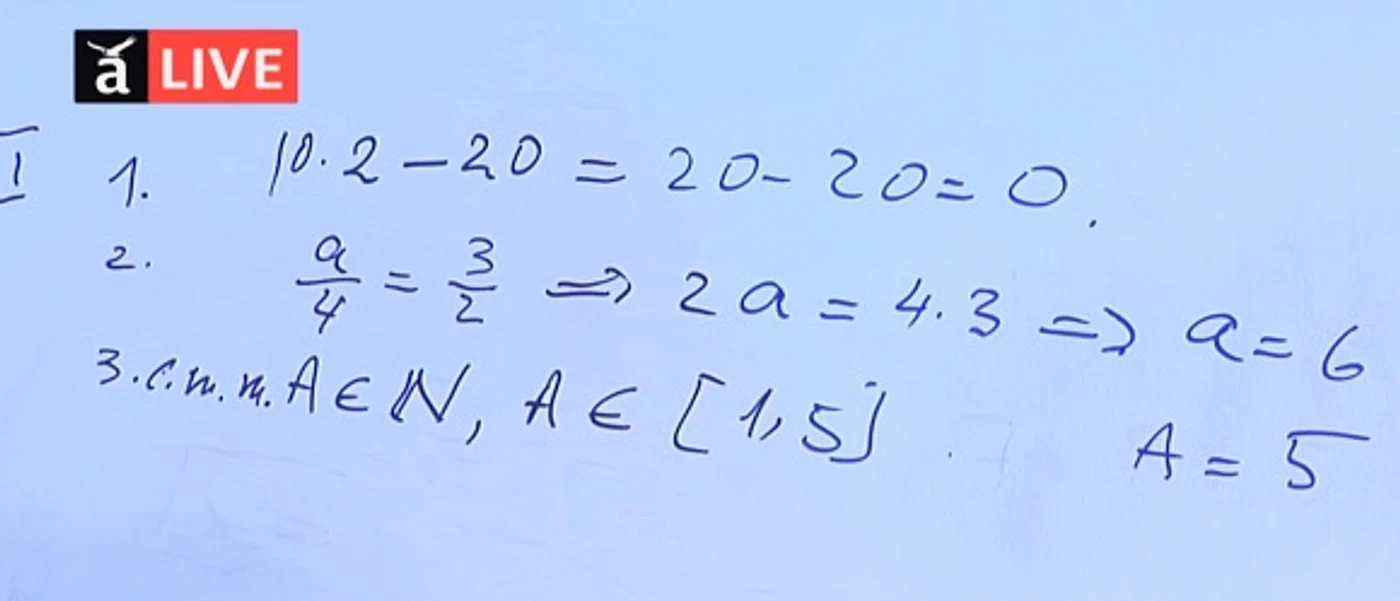 ă LIVE
I 1. 10·2-20 = 20-20=0.
2. a/4 = 3/2 ⇒ 2a = 4·3 ⇒ a=6
3. c.m.m. A∈ℕ, A∈[1,5]. A=5